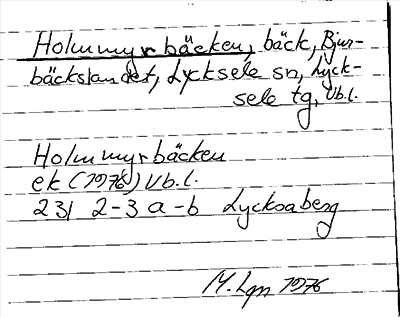 Holmmyrbäcken, bäck, Bjur-
bäckslandet, Lycksele sn, Lyck-
sele tg, Vb.l.
Holmmyrbäcken
ek (1976) Vb.l.
231 2-3 a-b Lycksaberg
M. Lgn 1976